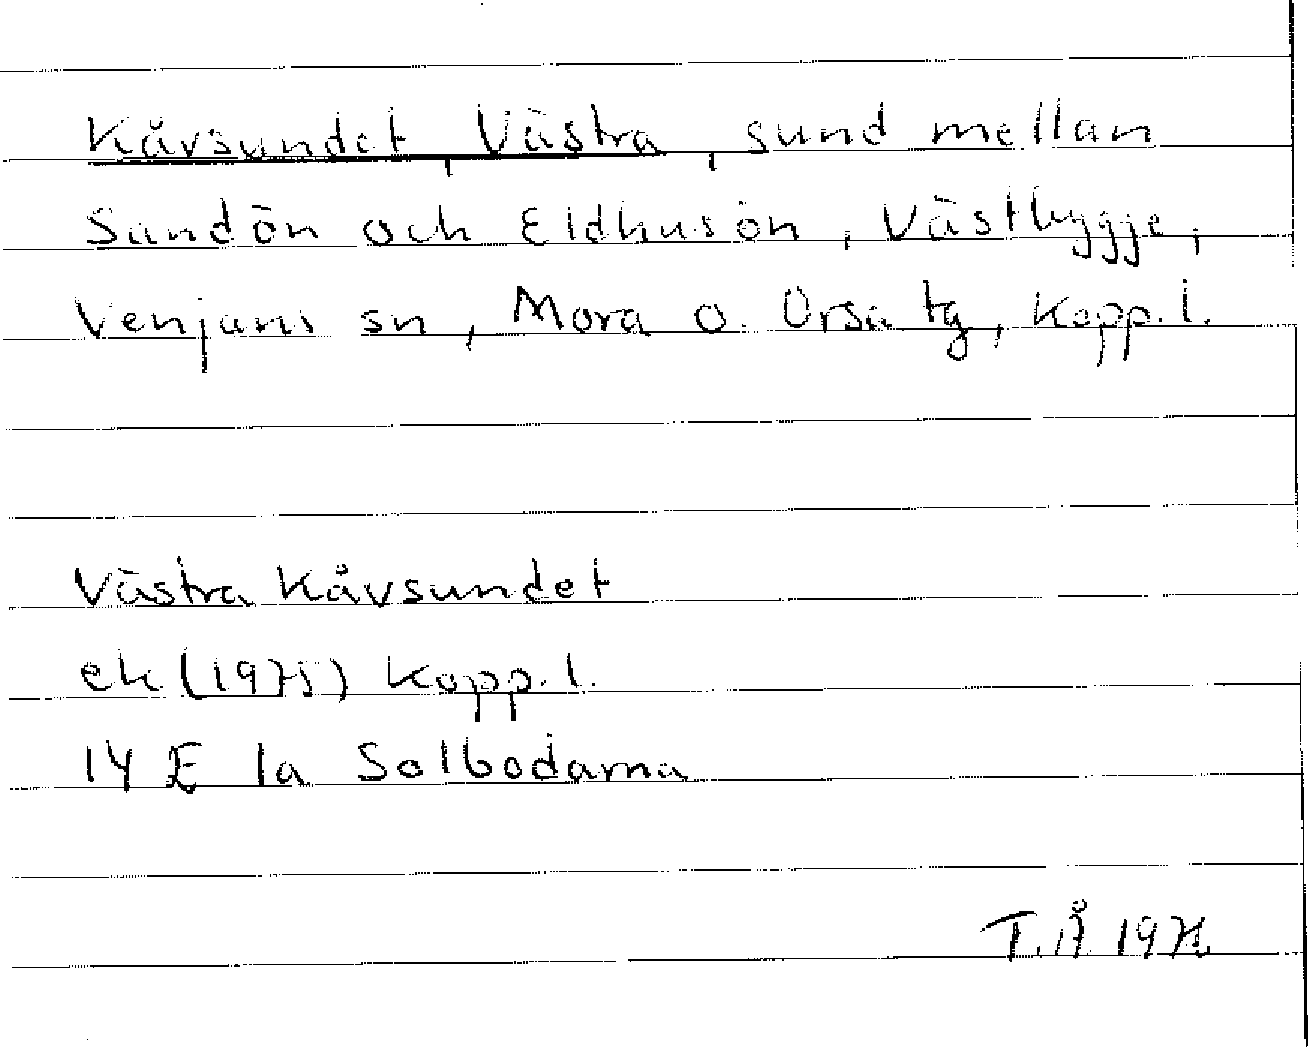 Kåvsundet, Västra, sund mellan
Sandön och Eldhusön, Västbygge,
Venjans sn, Mora o. Orsa tg, Kopp. l.
Västra Kåvsundet
ek (1975) Kopp. l.
14 E 1a Solbodarna
T. Å